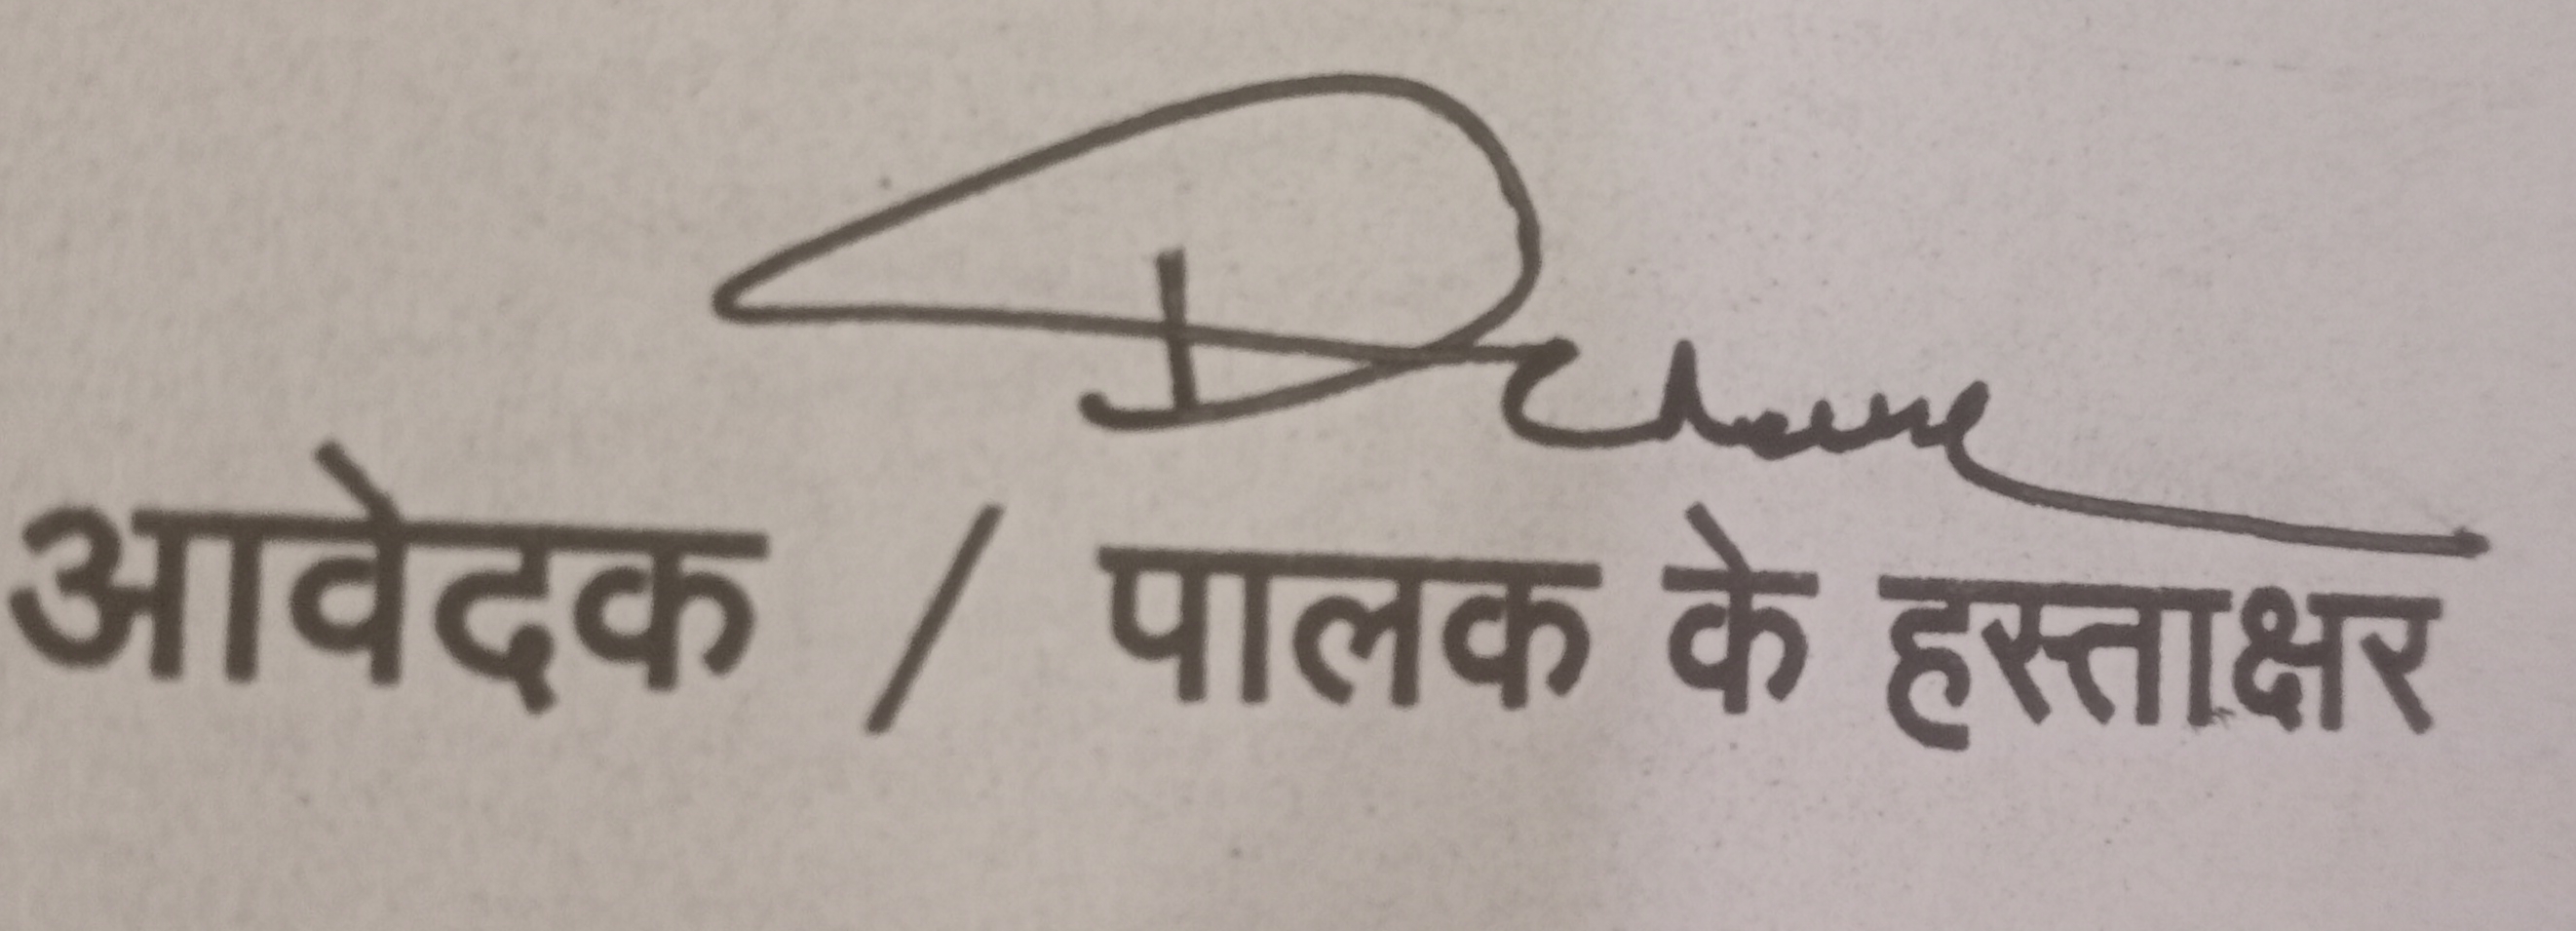 आवेदक / पालक के हस्ताक्षर